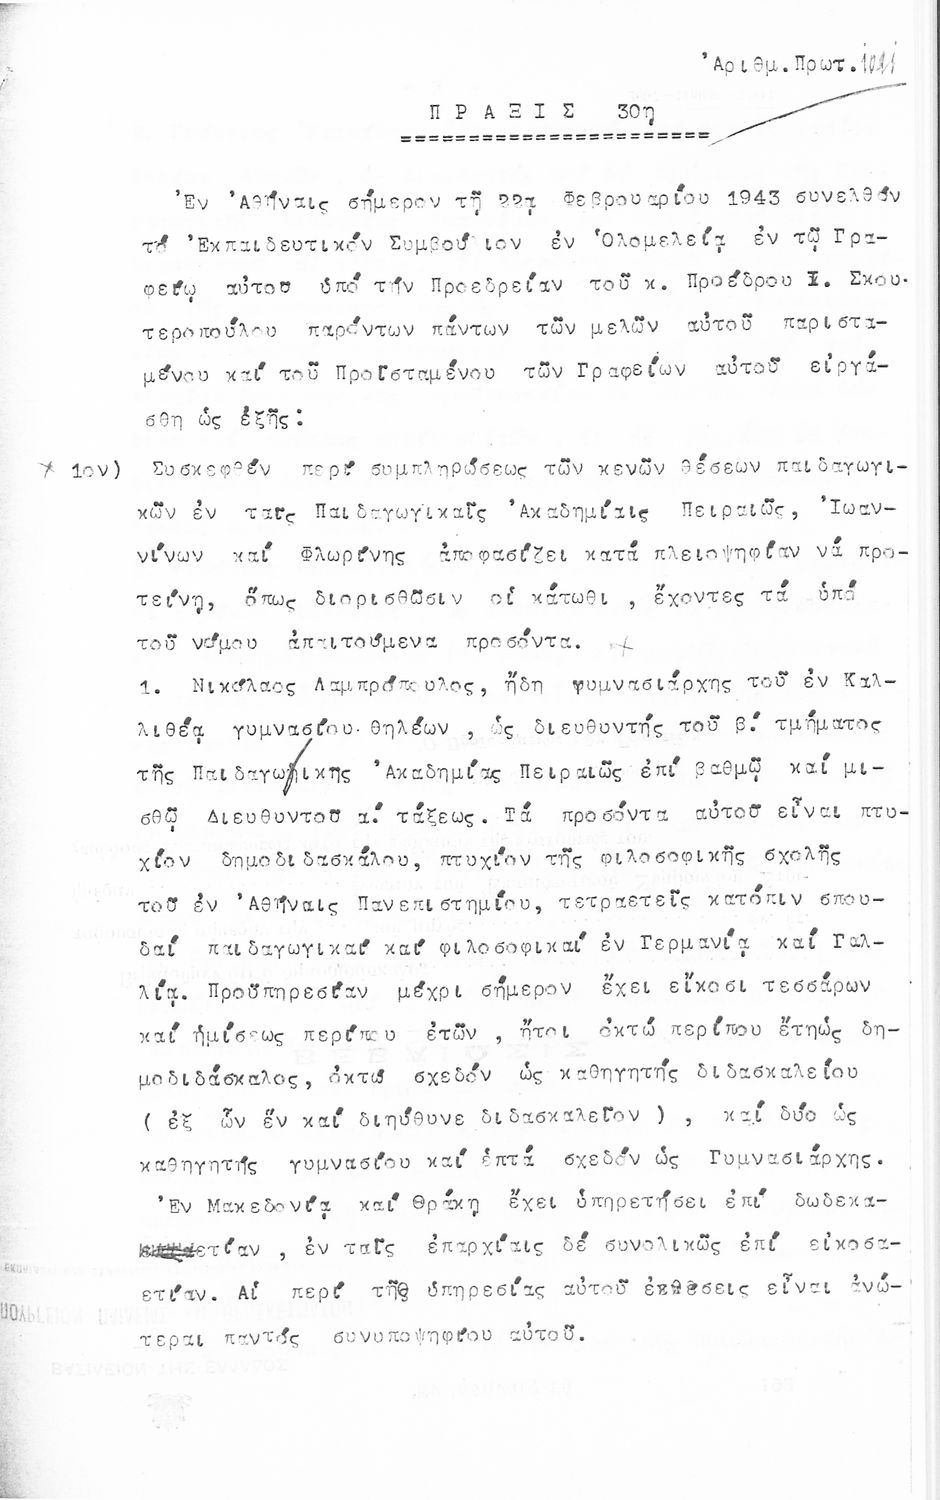 Ἀριθμ.Πρωτ.
Π Ρ Α Ξ Ι Σ 30η
Ἐν Ἀθήναις σήμερον τῇ 22ᾳ Φεβρουαρίου 1943 συνελθόν
τό Ἐκπαιδευτικόν Συμβού ιον ἐν Ὁλομελείᾳ ἐν τῷ Γρα-
φείῳ αὐτοῦ ὑπό τήν Προεδρείαν τοῦ κ. Προέδρου Ι. Σκου-
τεροπούλου παρόντων πάντων τῶν μελῶν αὐτοῦ παριστα-
μένου καί τοῦ Προϊσταμένου τῶν Γραφείων αὐτοῦ εἰργά-
σθη ὡς ἑξῆς:
1ον) Συσκεφθέν περί συμπληρώσεως τῶν κενῶν θέσεων παιδαγωγι-
κῶν ἐν ταῖς Παιδαγωγικαῖς Ἀκαδημίαις Πειραιῶς, Ἰωαν-
νίνων καί Φλωρίνης ἀποφασίζει κατά πλειοψηφίαν νά προ-
τείνῃ, ὅπως διορισθῶσιν οἱ κάτωθι , ἔχοντες τά ὑπό
τοῦ νόμου ἀπαιτούμενα προσόντα.
1. Νικόλαος Λαμπρόπουλος, ἤδη γυμνασιάρχης τοῦ ἐν Καλ-
λιθέᾳ γυμνασίου θηλέων , ὡς διευθυντής τοῦ β΄ τμήματος
τῆς Παιδαγωγικῆς Ἀκαδημίας Πειραιῶς ἐπί βαθμῷ καί μι-
σθῷ Διευθυντοῦ α΄ τάξεως. Τά προσόντα αὐτοῦ εἶναι πτυ-
χίον δημοδιδασκάλου, πτυχίον τῆς φιλοσοφικῆς σχολῆς
τοῦ ἐν Ἀθήναις Πανεπιστημίου, τετραετεῖς κατόπιν σπου-
δαί παιδαγωγικαί καί φιλοσοφικαί ἐν Γερμανίᾳ καί Γαλ-
λίᾳ. Προϋπηρεσίαν μέχρι σήμερον ἔχει εἴκοσι τεσσάρων
καί ἡμίσεως περίπου ἐτῶν , ἤτοι ὀκτώ περίπου ἔτηώς δη-
μοδιδάσκαλος, ὀκτώ σχεδόν ὡς καθηγητής διδασκαλείου
( ἐξ ὧν ἕν καί διηύθυνε διδασκαλεῖον ) , καί δύο ὡς
καθηγητής γυμνασίου καί ἑπτά σχεδόν ὡς Γυμνασιάρχης.
Ἐν Μακεδονίᾳ καί Θράκῃ ἔχει ὑπηρετήσει ἐπί δωδεκα-
ετίαν , ἐν ταῖς ἐπαρχίαις δέ συνολικῶς ἐπί εἰκοσα-
ετίαν. Αἱ περί τῆς ὑπηρεσίας αὐτοῦ ἐκθέσεις εἶναι ἀνώ-
τεραι παντός συνυποψηφίου αὐτοῦ.